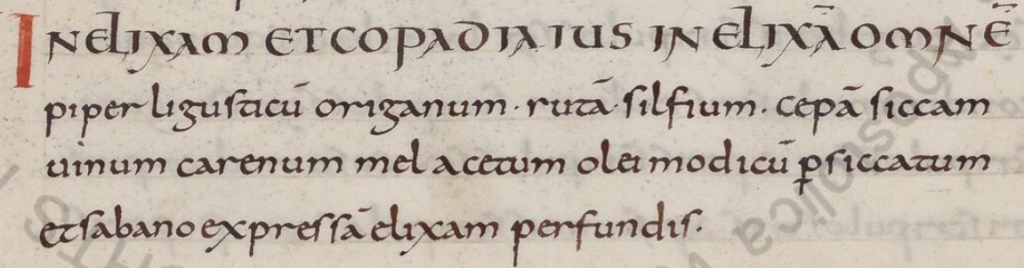 IN ELIXAM ET COPADIA IUS IN ELIXĀ OMNĒ
piper ligusticū origanum · rutā · silfium · cepā siccam
uinum carenum mel acetum olei modicū ꝑsiccatum
et sabano expressā elixam perfundis.